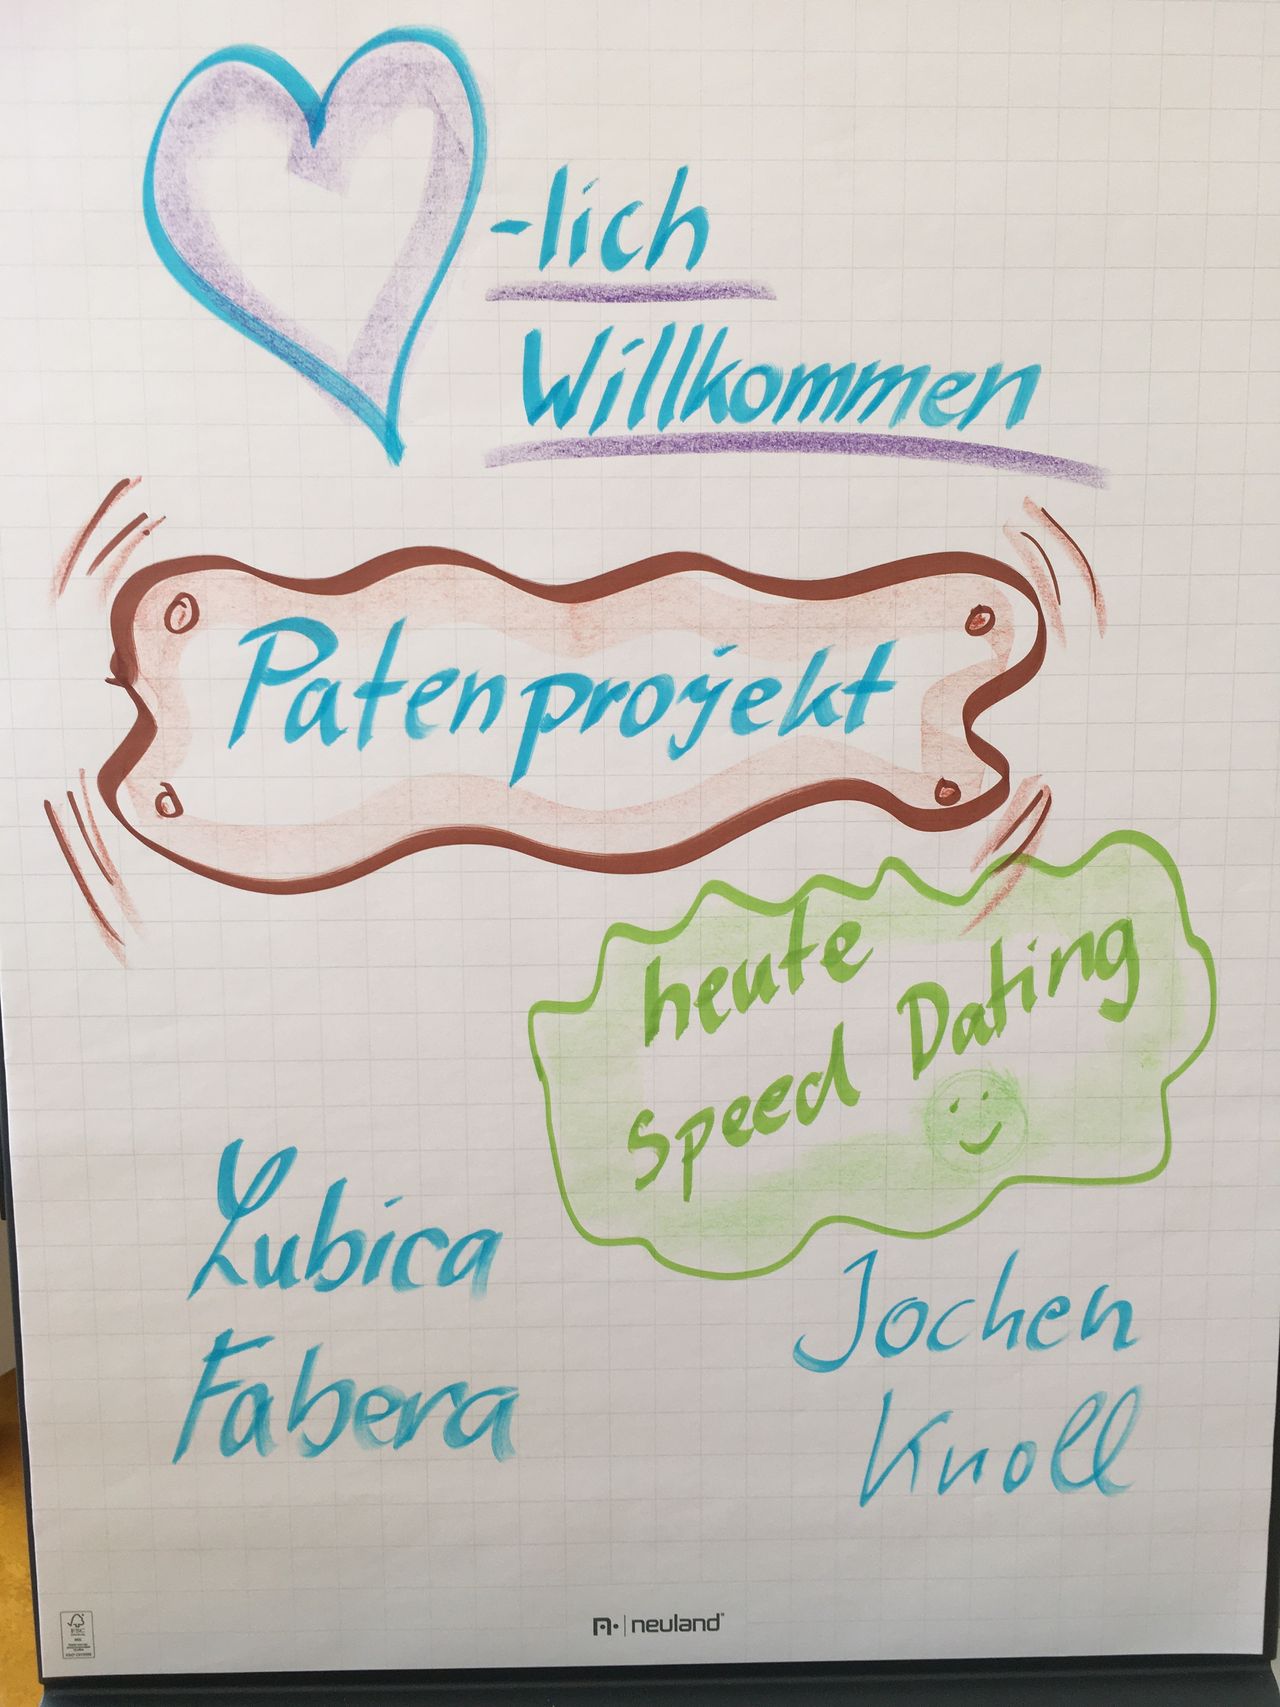 -lich
Willkommen
Patenprojekt
heute
Speed Dating
Lubica
Fabera
Jochen
Knoll
neuland
FSC